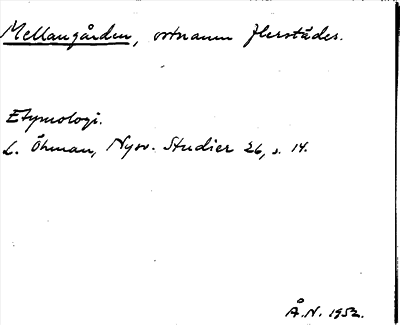 Mellangården, ortnamn flerstädes.
Etymologi.
L. Öhman, Nysv. Studier 26, s. 14.
Å.N. 1952.